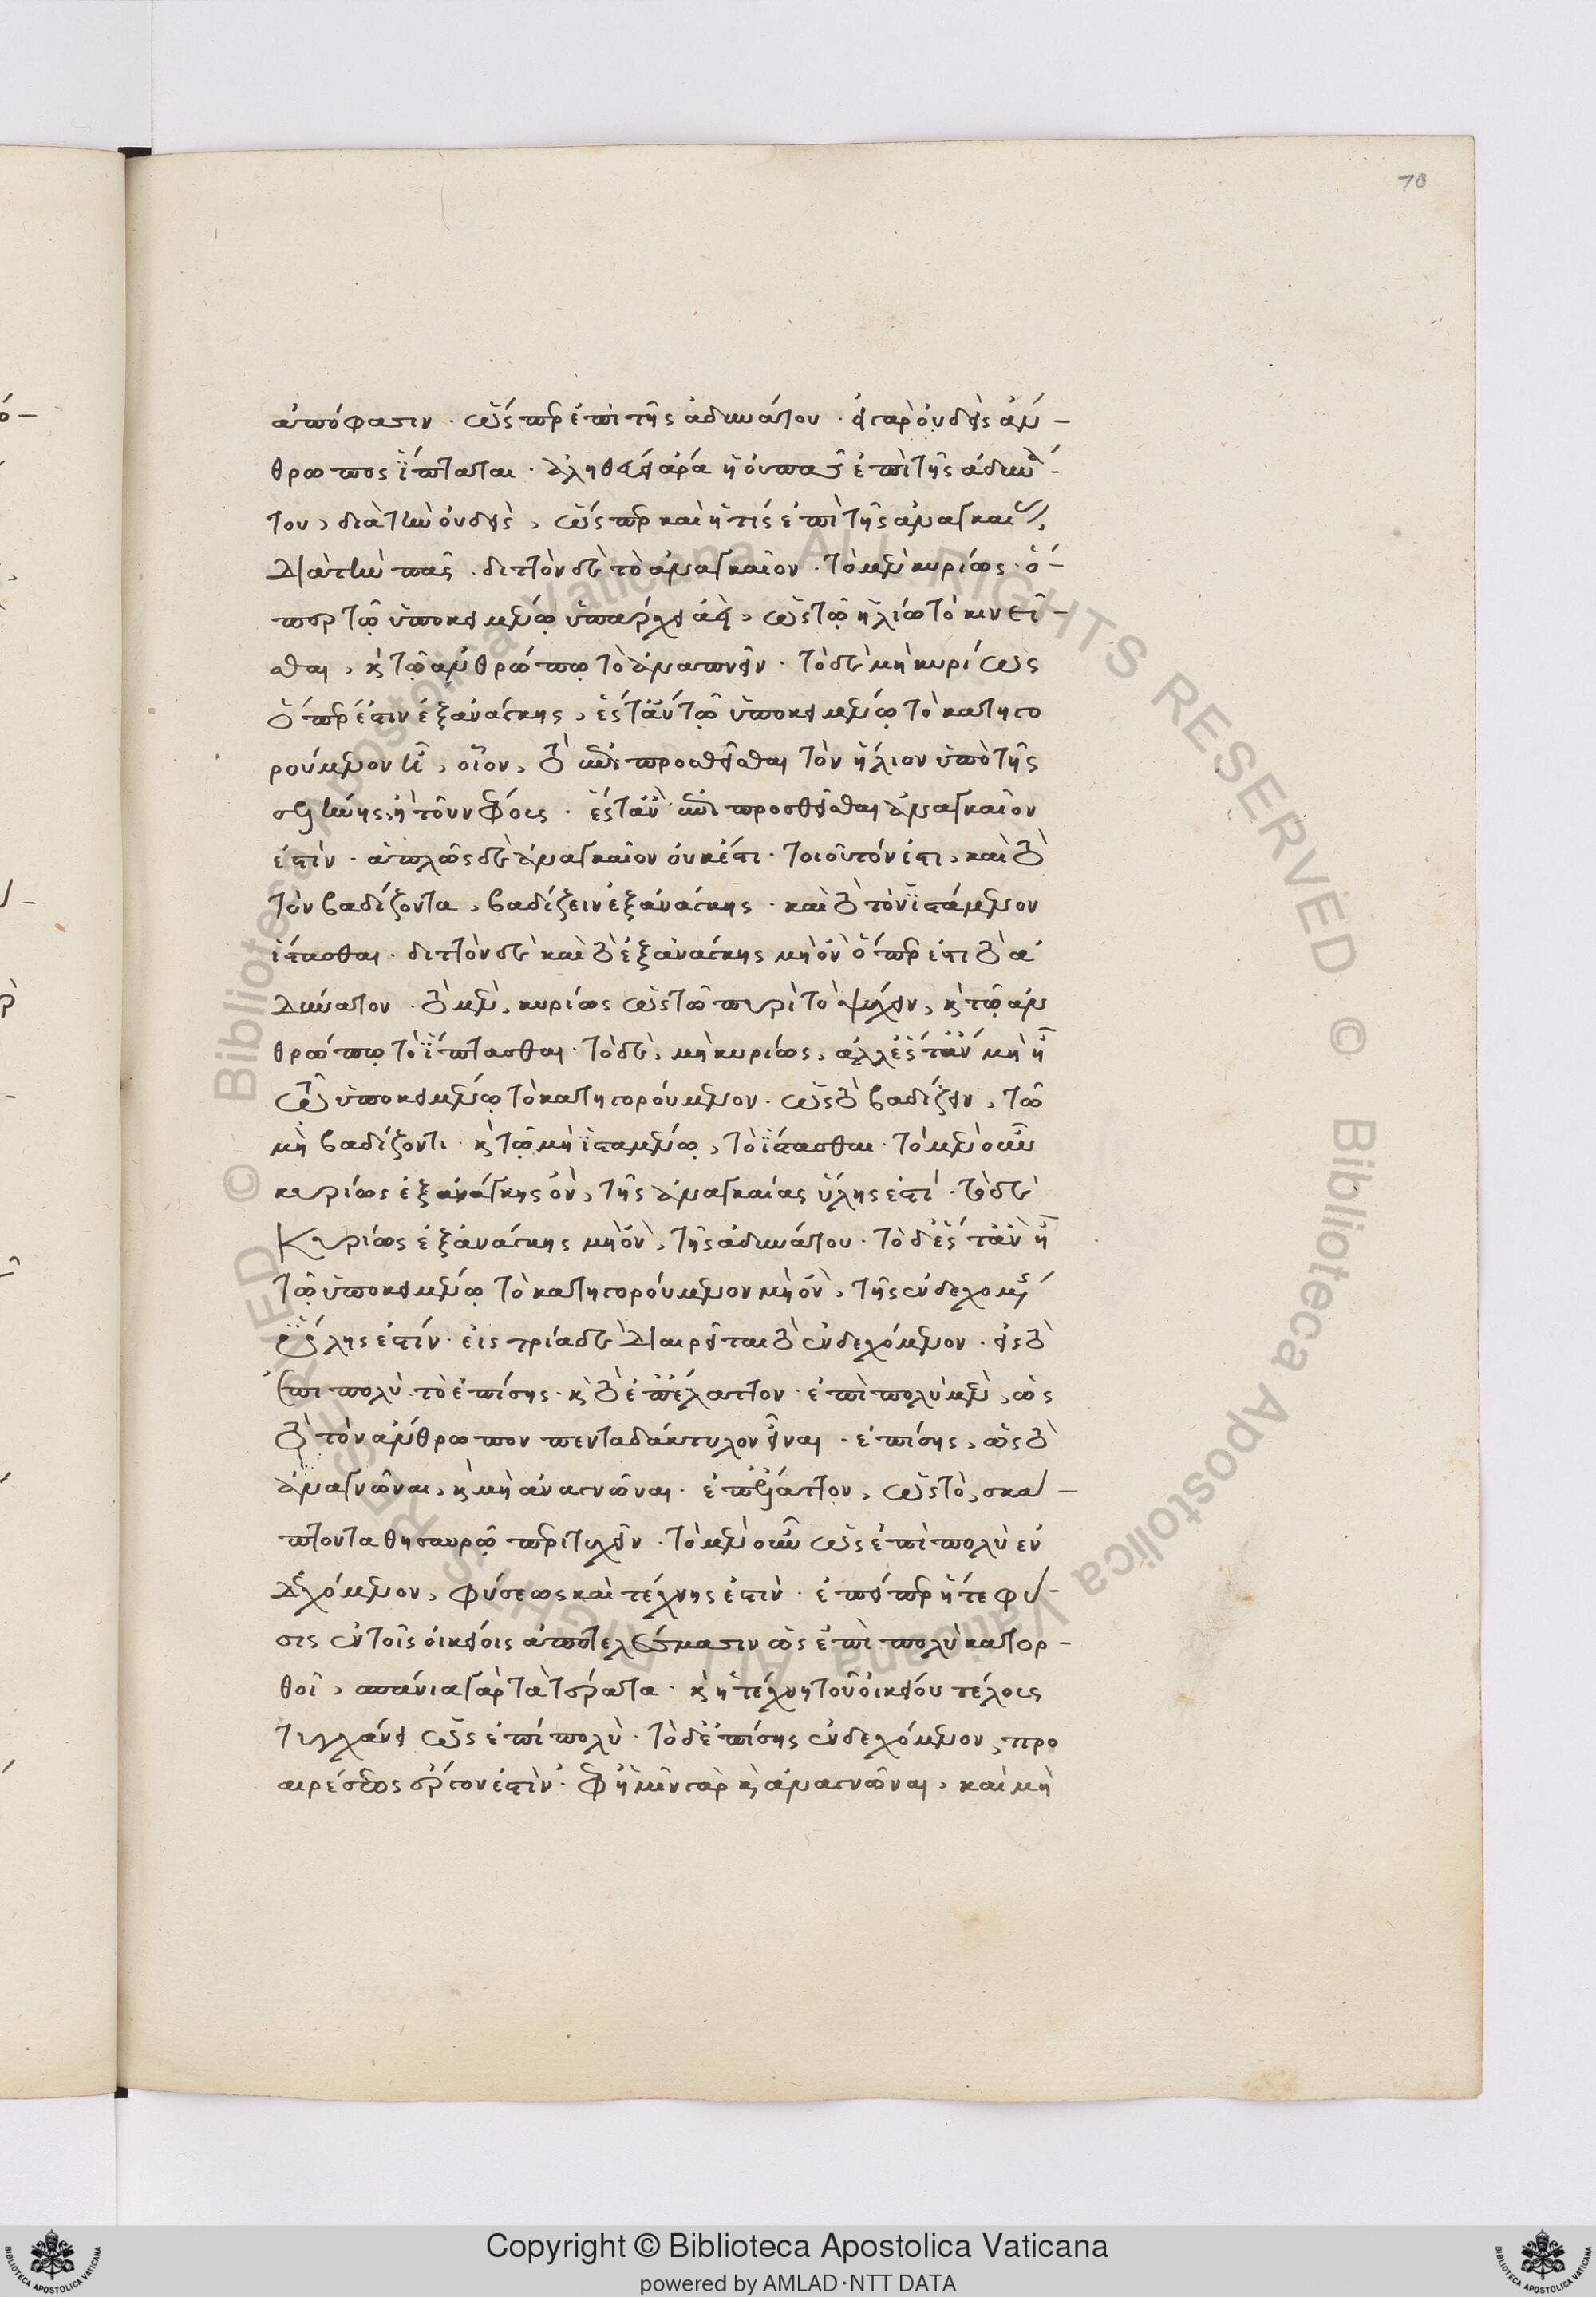 70
ἀπόφασιν · ὥσπερ ἐπὶ τῆς ἀδυνάτου · εἰ γὰρ οὐδεὶς ἄν-
θρωπος ἵπταται · ἀληθεύει ἄρα ἡ οὐ πᾶς ἐπὶ τῆς ἀδυνά-
του, διὰ τὴν οὐδεὶς, ὥσπερ καὶ ἡ τὶς ἐπὶ τῆς ἀναγκαίας,
διὰ τὴν πᾶς · διττὸν δὲ τὸ ἀναγκαῖον · τὸ μὲν κυρίως · ὅ-
περ τῷ ὑποκειμένῳ ὑπάρχει ἀεὶ, ὡς τῷ ἡλίῳ τὸ κινεῖ-
σθαι, κ τῷ ἀνθρώπῳ τὸ ἀναπνεῖν · τὸ δὲ μὴ κυρίως
ὅπερ ἐστὶν ἐξ ἀνάγκης, ἔστ' ἂν τῷ ὑποκειμένῳ τὸ κατηγο
ρούμενον ᾖ, οἷον, τὸ ἐπιπροσθεῖσθαι τὸν ἥλιον ὑπὸ τῆς
σελήνης, ἢ τοῦ νέφους · ἔστ' ἂν ἐπιπροσθεῖσθαι ἀναγκαῖον
ἐστὶν · ἁπλῶς δὲ ἀναγκαῖον οὐκ ἔστι · τοιοῦτόν ἐστι, καὶ τὸ
τὸν βαδίζοντα, βαδίζειν ἐξ ἀνάγκης · καὶ τὸ τὸν ἱστάμενον
ἵστασθαι · διττὸν δὲ καὶ τὸ ἐξ ἀνάγκης μὴ ὂν ὅπερ ἐστὶ τὸ ἀ
δύνατον · τὸ μὲν, κυρίως ὡς τῷ πυρὶ τὸ ψύχειν, κ τῷ ἀν
θρώπῳ τὸ ἵπτασθαι · τὸ δὲ, μὴ κυρίως, ἀλλ' ἔστ' ἂν μὴ ᾖ
τῷ ὑποκειμένῳ τὸ κατηγορούμενον · ὡς τὸ βαδίζειν, τῷ
μὴ βαδίζοντι · κ τῷ μὴ ἱσταμένῳ, τὸ ἵστασθαι · τὸ μὲν οὖν
κυρίως ἐξ ἀνάγκης ὂν, τῆς ἀναγκαίας ὕλης ἐστί · τὸ δὲ
κυρίως ἐξ ἀνάγκης μὴ ὂν, τῆς ἀδυνάτου · τὸ δ' ἔστ' ἂν ᾖ
τῷ ὑποκειμένῳ τὸ κατηγορούμενον μὴ ὂν, τῆς ἐνδεχομένης
ὕλης ἐστίν · εἰς τρία δὲ διαιρεῖται τὸ ἐνδεχόμενον · εἰς τὸ
ἐπιπολὺ · τὸ ἐπίσης · κ τὸ ἐπ' ἔλαττον · ἐπιπολὺ μὲν, ὡς
τὸ τὸν ἄνθρωπον πενταδάκτυλον εἶναι · ἐπίσης, ὡς τὸ
ἀναγνῶναι, κ μὴ ἀναγνῶναι · ἐπ' ἔλαττον, ὡς τὸ, σκά-
πτοντα θησαυρῷ περιτυχεῖν · τὸ μὲν οὖν ὡς ἐπιπολὺ ἐν
δεχόμενον, φύσεως καὶ τέχνης ἐστὶν · ἐπείπερ ἥ τε φύ-
σις ἐν τοῖς οἰκείοις ἀποτελέσμασιν ὡς ἐπιπολὺ κατορ-
θοῖ, σπάνια γὰρ τὰ τέρατα · κ ἡ τέχνη τοῦ οἰκείου τέλους
τυγχάνει ὡς ἐπιπολὺ · τὸ δ' ἐπίσης ἐνδεχόμενον, προ
αιρέσεως ἔργον ἐστὶν · ἐφ' ἡμῖν γὰρ κ ἀναγνῶναι, καὶ μὴ
Copyright © Biblioteca Apostolica Vaticana
powered by AMLAD·NTT DATA